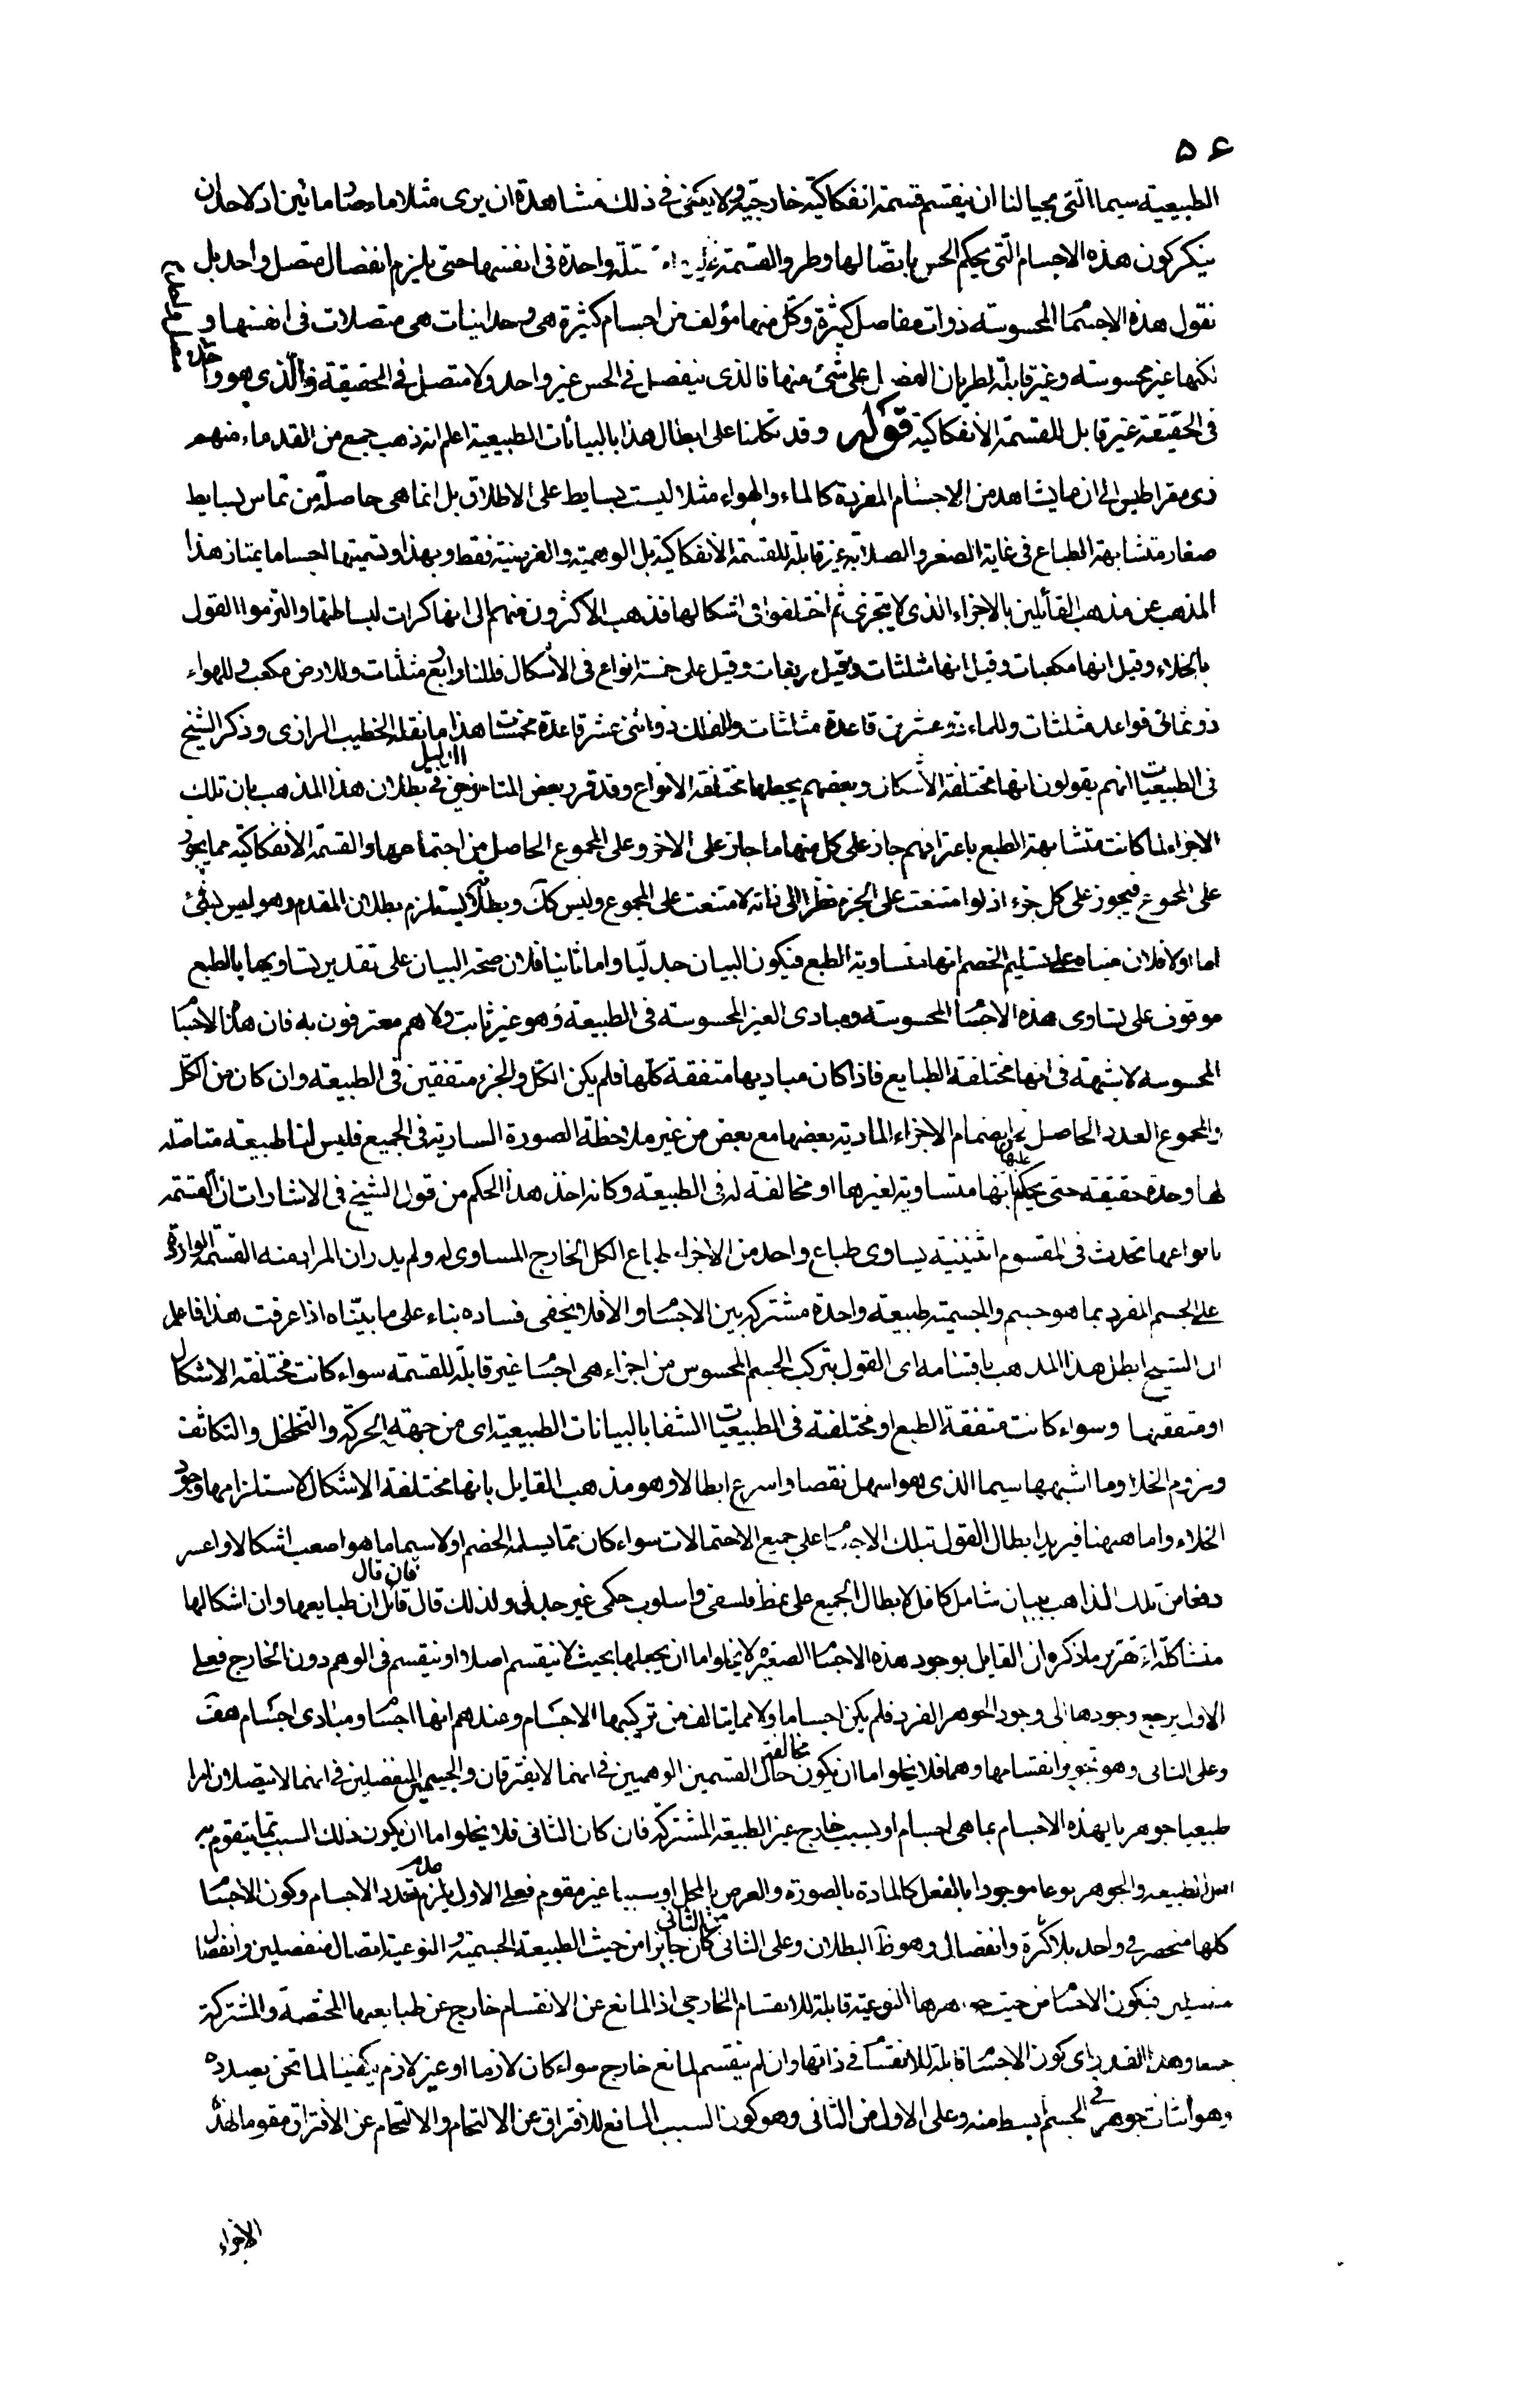 ۵۶
الطبيعية سيما التى بحيالنا ان ينقسم قسمة انفكاكية خارجية ولا يكفى فى ذلك مشاهدة ان يرى مثلا ماء صار مائين اذ لاحد ان
ينكر كون هذه الاجسام التى يحكم الحس باتصالها وطرو القسمة عليها متصلة واحدة فى انفسها حتى يلزم انفصال متصل واحد بل
نقول هذه الاجسام المحسوسة ذوات مفاصل كثيرة وكل منها مؤلف من اجسام كثيرة هى وحدانيات هى متصلات فى انفسها و
لكنها غير محسوسة وغير قابلة لطريان الفصل على شئ منها فالذى ينفصل فى الحس غير واحد ولا متصل فى الحقيقة والذى هو واحد
فى الحقيقة غير قابل للقسمة الانفكاكية قوله وقد تكلمنا على ابطال هذا بالبيانات الطبيعية اعلم انه ذهب جمع من القدماء منهم
ذى مقراطيس الى ان ما يشاهد من الاجسام المفردة كالماء والهواء مثلا ليست بسايط على الاطلاق بل انما هى حاصلة من تماس بسايط
صغار متشابهة الطباع فى غاية الصغر والصلابة غير قابلة للقسمة الانفكاكية بل الوهمية والفرضية فقط وبهذا وتسميتها اجساما يمتاز هذا
المذهب عن مذهب القائلين بالاجزاء الذى لا يتجزى ثم اختلفوا فى اشكالها فذهب الاكثرون منهم الى انها كرات لبساطتها والتزموا القول
بالخلاء وقيل انها مكعبات وقيل انها مثلثات وقيل مربعات وقيل على خمسة انواع فى الاشكال فللنار اربع مثلثات وللارض مكعب وللهواء
ذو ثمانى قواعد مثلثات وللماء ذو عشرين قاعدة مثلثات وللفلك ذو اثنى عشر قاعدة مخمسات هذا ما نقله الخطيب الرازى وذكر الشيخ
فى الطبيعيات انهم يقولون انها مختلفة الاشكال وبعضهم يجعلها مختلفة الانواع وقد قرر بعض المتاخرين فى بطلان هذا المذهب بان تلك
الاجزاء لما كانت متشابهة الطبع باعترافهم جاز على كل منها ما جاز على الاخر وعلى المجموع الحاصل من اجتماعها والقسمة الانفكاكية مما يجوز
على المجموع فيجوز على كل جزء اذ لو امتنعت على الجزء نظرا الى ذاته لامتنعت على المجموع وليس كك وبطلان التالى يستلزم بطلان المقدم وهو ليس بشئ
اما اولا فلان مبناه على تسليم الخصم انها متساوية الطبع فيكون البيان جدليا واما ثانيا فلان صحة البيان على تقدير تساويها بالطبع
موقوف على تساوى هذه الاجسام المحسوسة ومبادى الغير المحسوسة فى الطبيعة وهو غير ثابت ولا هم معترفون به فان هذه الاجسام
المحسوسه لا شبهة فى انها مختلفة الطبايع فاذا كان مباديها متفقة كلها فلم يكن الكل والجزء متفقين فى الطبيعة وان كان من الكل
والمجموع العدد الحاصل من انضمام الاجزاء المادية بعضها مع بعض من غير ملاحظة الصورة السارية فى الجميع فليس لها طبيعة متاصلة
لها وحدة حقيقة حتى يحكم عليها بانها متساوية لغيرها او مخالفة له فى الطبيعة وكانه اخذ هذا الحكم من قول الشيخ فى الاشارات ان القسمة
بانواعها تحدث فى المقسوم اثنينية يساوى طباع واحد من الاجزاء طباع الكل الخارج المساوى له ولم يدر ان المراد منه القسمة الواردة
على الجسم المفرد بما هو جسم والجسمية طبيعة واحدة مشتركة بين الاجسام والا فلا يخفى فساده بناء على ما بيناه اذا عرفت هذا فاعلم
ان الشيخ ابطل هذا المذهب باقسامه اى القول بتركب الجسم المحسوس من اجزاء هى اجسام غير قابلة للقسمة سواء كانت مختلفة الاشكال
او متفقتها وسواء كانت متفقة الطبع او مختلفة فى الطبيعيات الشفا بالبيانات الطبيعية اى من جهة الحركة والتخلخل والتكاثف
ولزوم الخلاء وما اشبهها سيما الذى هو اسهل نقصا واسرع ابطالا وهو مذهب القايل بانها مختلفة الاشكال لاستلزامها وجود
الخلاء واما ههنا فيريد ابطال القول بتلك الاجسام على جميع الاحتمالات سواء كان مما يسلمه الخصم اولا سيما ما هو اصعب اشكالا واعسر
دفعا من تلك المذاهب ببيان شامل كافل لابطال الجميع على نمط فلسفى واسلوب حكمى غير جدلى ولذلك قال فان قال قائل ان طبايعها وان اشكالها
متشاكلة اه تقرير ما ذكره ان القايل بوجود هذه الاجسام الصغيرة لا يخلوا اما ان يجعلها بحيث لا ينقسم اصلا او ينقسم فى الوهم دون الخارج فعلى
الاول يرجع وجودها الى وجود الجوهر الفرد فلم يكن اجساما ولا مما يتالف من تركيبها الاجسام وعندهم انها اجسام ومبادى اجسام هف
وعلى الثانى وهو تجويز انقسامها وهما فلا يخلوا اما ان يكون مخالفة حال القسمين الوهميين فى انهما لا يفترقان والجسمين المنفصلين فى انهما لا يتصلان امرا
طبيعيا جوهريا لهذه الاجسام بما هى اجسام او بسبب خارج عن الطبيعة المشتركة فان كان الثانى فلا يخلوا اما ان يكون ذلك السبب مما يتقوم به
الطبيعة والجوهر نوعا موجودا بالفعل كالمادة بالصورة والعرض بالمحل او سببا غير مقوم فعلى الاول يلزم عدم تعدد الاجسام وكون الاجسام
كلها منحصرة فى واحد بلا كثرة وانفصال وهو ظ البطلان وعلى الثانى من الثانى كان جايزا من حيث الطبيعة الجسمية والنوعية اتصال منفصلين وانفصال
متصلين فيكون الاجسام من حيث جوهرها النوعية قابلة للانقسام الخارجى اذ المانع عن الانقسام خارج عن طبايعها المختصة والمشتركة
جميعا وهذا القدر اى كون الاجسام قابلة للانقسام فى ذاتها وان لم ينقسم لمانع خارج سواء كان لازما او غير لازم يكفينا لما نحن بصدده
وهو اثبات جوهر فى الجسم ابسط منه وعلى الاول من الثانى وهو كون السبب المانع للافتراق عن الالتحام والالتحام عن الافتراق مقوما لهذه
الاجزاء